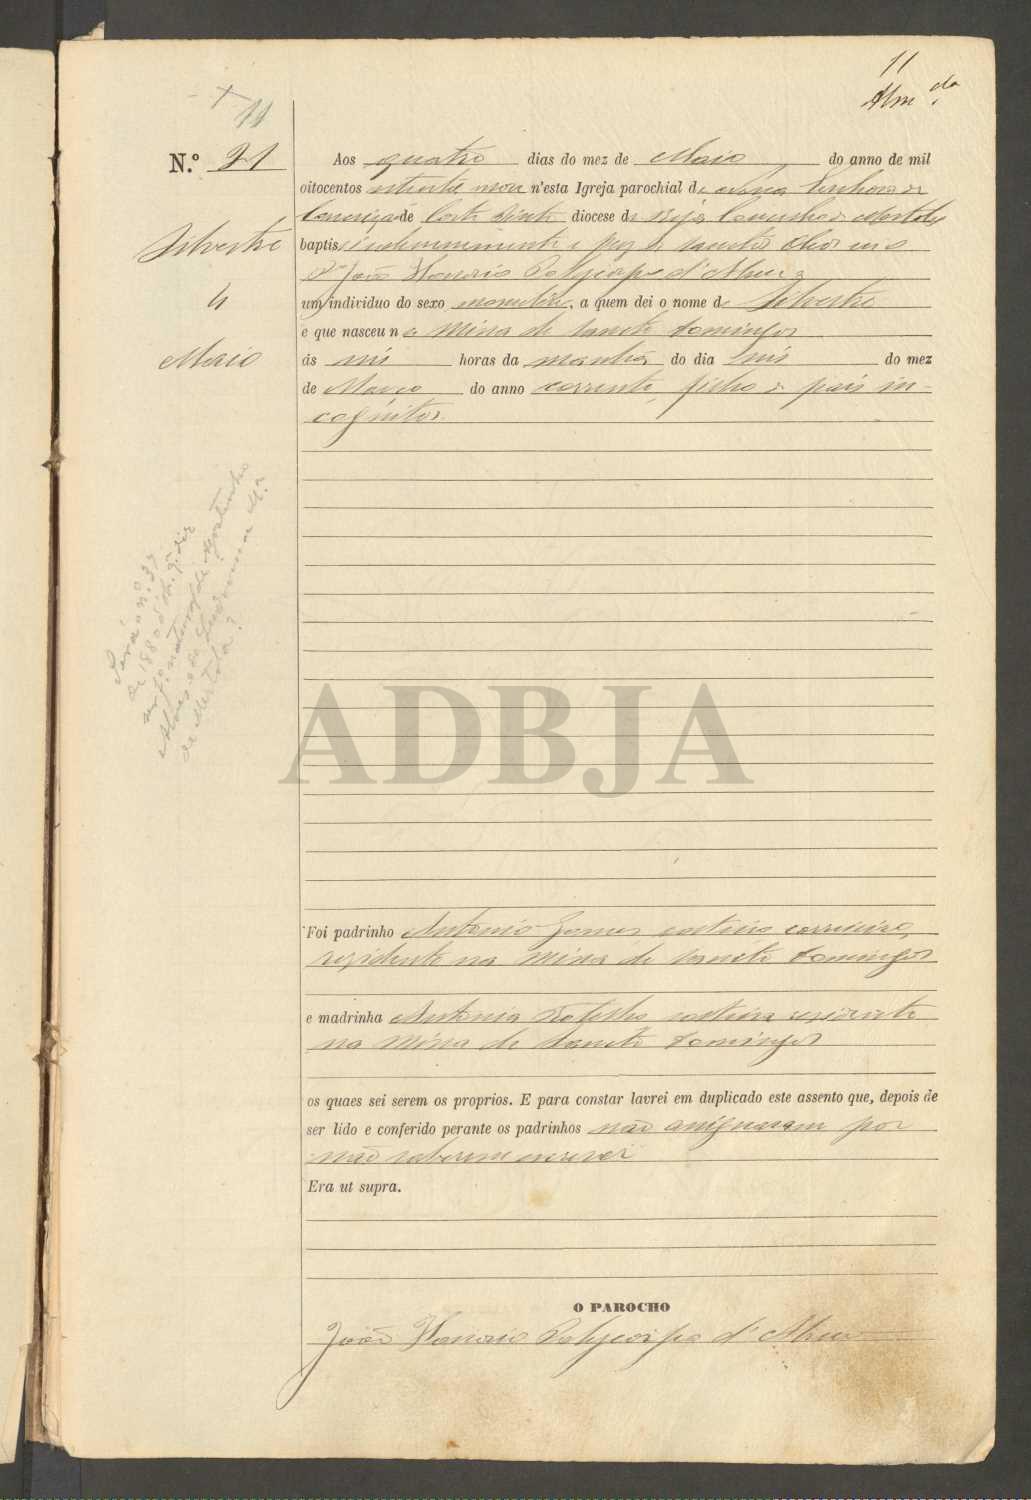 11
Alm.da
11
N.º 21
Silvestre
4
Maio
Aos quatro dias do mez de Maio do anno de mil
oitocentos oitenta e nove n'esta Igreja parochial de Nossa Senhora da
Conceição de Corte Pinto diocese de Beja Concelho de Mertola
baptisei solemnemente e puz os sanctos Oleos eu o
P.e João Honorio Polycarpo d'Abreu a
um individuo do sexo masculino, a quem dei o nome de Silvestre
e que nasceu na Mina de Sancto Domingos
ás seis horas da manhã do dia seis do mez
de Março do anno corrente, filho de pais in-
cognitos.
Será o nº 37
de 1880 d. q. diz
ser f.º natural de Agostinho
Alves e de Ludovina M.ª
de Mertola?
Foi padrinho Antonio Gomes solteiro corrieiro,
residente na Mina de Sancto Domingos
e madrinha Antonia Botelho solteira residente
na Mina de Sancto Domingos
os quaes sei serem os proprios. E para constar lavrei em duplicado este assento que, depois de
ser lido e conferido perante os padrinhos não assignaram por
não saberem escrever
Era ut supra.
O PAROCHO
João Honorio Polycarpo d'Abreu
ADBJA